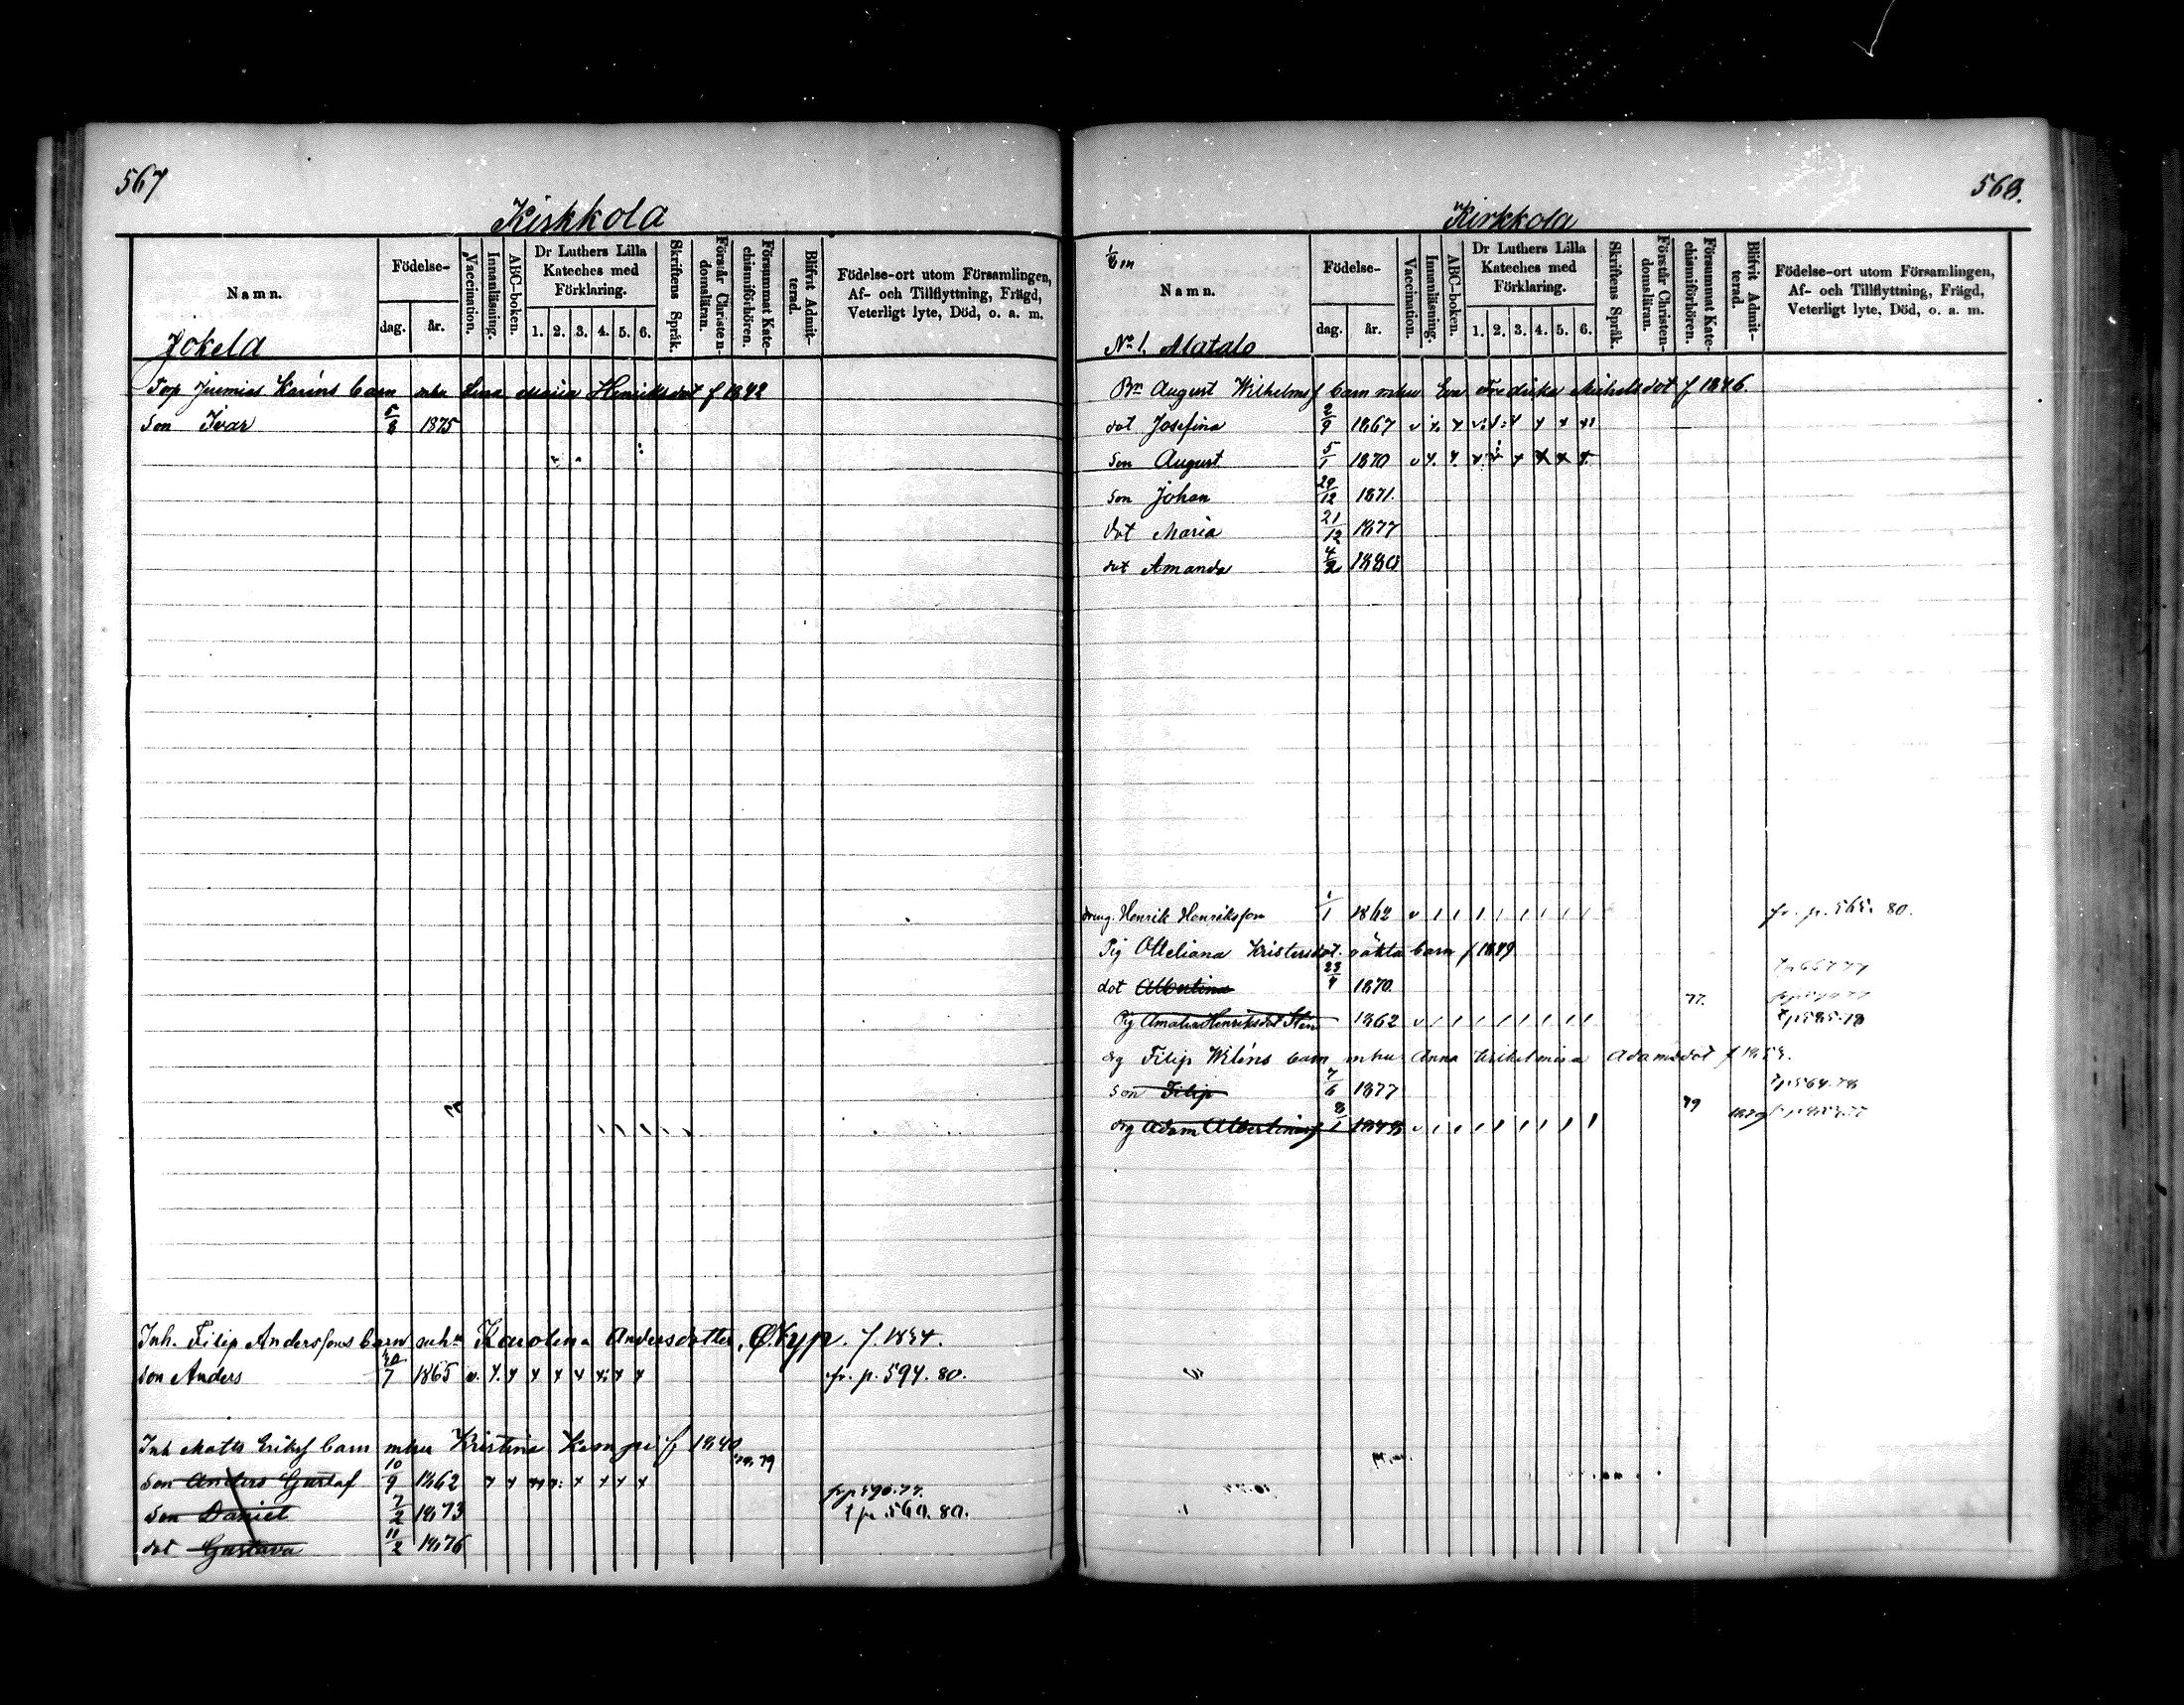 567
Kirkkola
Namn.
Födelse-
dag.
år.
Vaccination.
Innanläsning.
ABC-boken.
Dr Luthers Lilla
Kateches med
Förklaring.
1. 2. 3. 4. 5. 6.
Skriftens Språk.
Förstår Christen-
domsläran.
Försummat Kate-
chismiförhören.
Blifvit Admit-
terad.
Födelse-ort utom Församlingen,
Af- och Tillflyttning, Frägd,
Veterligt lyte, Död, o. a. m.
Jokela
Torp Karéns barn mhu Lena Maria Henriksdot f 1842
Son Ivar 5/8 1875
Inh. Filip Anderssons barn Karolina Andersdotter, f. 1834.
Son Anders 20/7 1865 v. fr. p. 594. 80.
Inh Matts barn mhu Kristina f 1840
79
Son Anders Gustaf 10/9 1862
fr p 590. 77.
Son Daniel 7/2 1873 t p. 560. 80.
dot Gustava 11/2 1876
568.
Kirkkola
Namn.
Födelse-
dag.
år.
Vaccination.
Innanläsning.
ABC-boken.
Dr Luthers Lilla
Kateches med
Förklaring.
1. 2. 3. 4. 5. 6.
Skriftens Språk.
Förstår Christen-
domsläran.
Försummat Kate-
chismiförhören.
Blifvit Admit-
terad.
Födelse-ort utom Församlingen,
Af- och Tillflyttning, Frägd,
Veterligt lyte, Död, o. a. m.
No 1. Alatalo
Bn August Wilhelms barn mhu Eva Fredrika Michelsdot f 1846.
dot Josefina 2/9 1867 v
Son August 5/1 1870 v
Son Johan 29/12 1871.
Dot Maria 21/12 1877
dot Amanda 4/2 1880
dreng. Henrik Henriksson 1/1 1862 v fr. p. 565. 80.
Pig Otteliana Kristersdot. oäkta barn f 1849
dot Albertina 23/4 1870.
77.
Pig Amalia Henriksdot 1862 v t p 585. 78
drg Filip Wiléns barn mhu Anna Adamsdot
Son Filip 7/6 1877 t p 564. 78
79
drg Adam 8/1 v